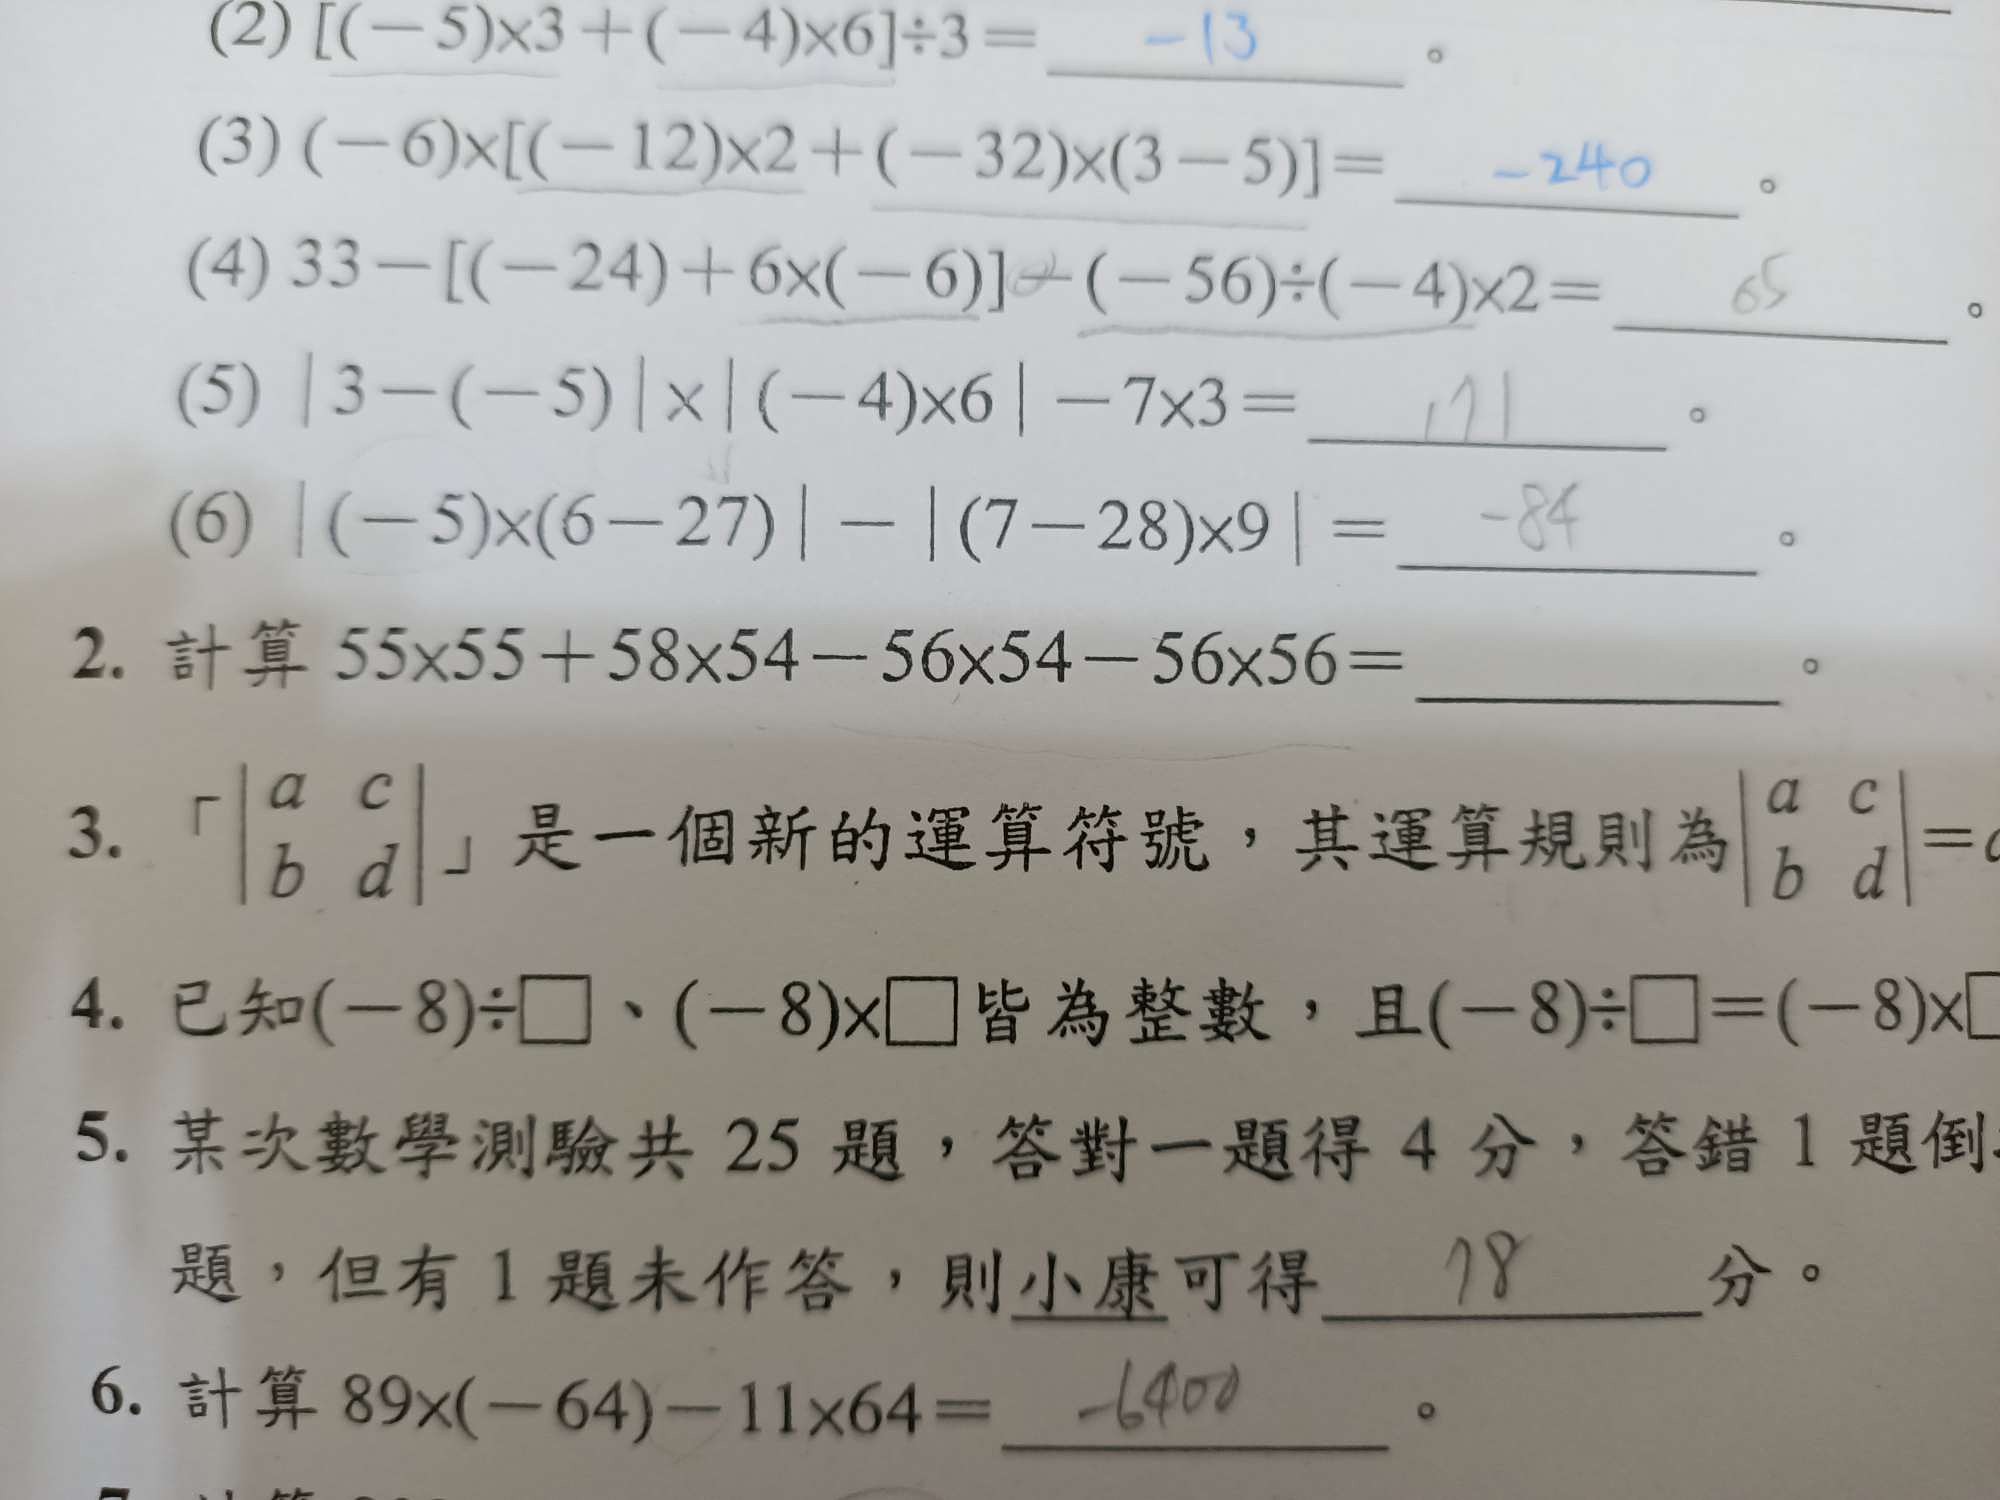 (2) [(－5)×3＋(－4)×6]÷3＝ －13 。
(3) (－6)×[(－12)×2＋(－32)×(3－5)]＝ －240 。
(4) 33－[(－24)＋6×(－6)]－(－56)÷(－4)×2＝ 65 。
(5) |3－(－5)|×|(－4)×6|－7×3＝ 171 。
(6) |(－5)×(6－27)|－|(7－28)×9|＝ －84 。
2. 計算 55×55＋58×54－56×54－56×56＝ 。
3. 「| a c b d |」是一個新的運算符號，其運算規則為| a c b d |＝
4. 已知(－8)÷□、(－8)×□皆為整數，且(－8)÷□＝(－8)×□
5. 某次數學測驗共 25 題，答對一題得 4 分，答錯 1 題倒
題，但有 1 題未作答，則小康可得 78 分。
6. 計算 89×(－64)－11×64＝ －6400 。